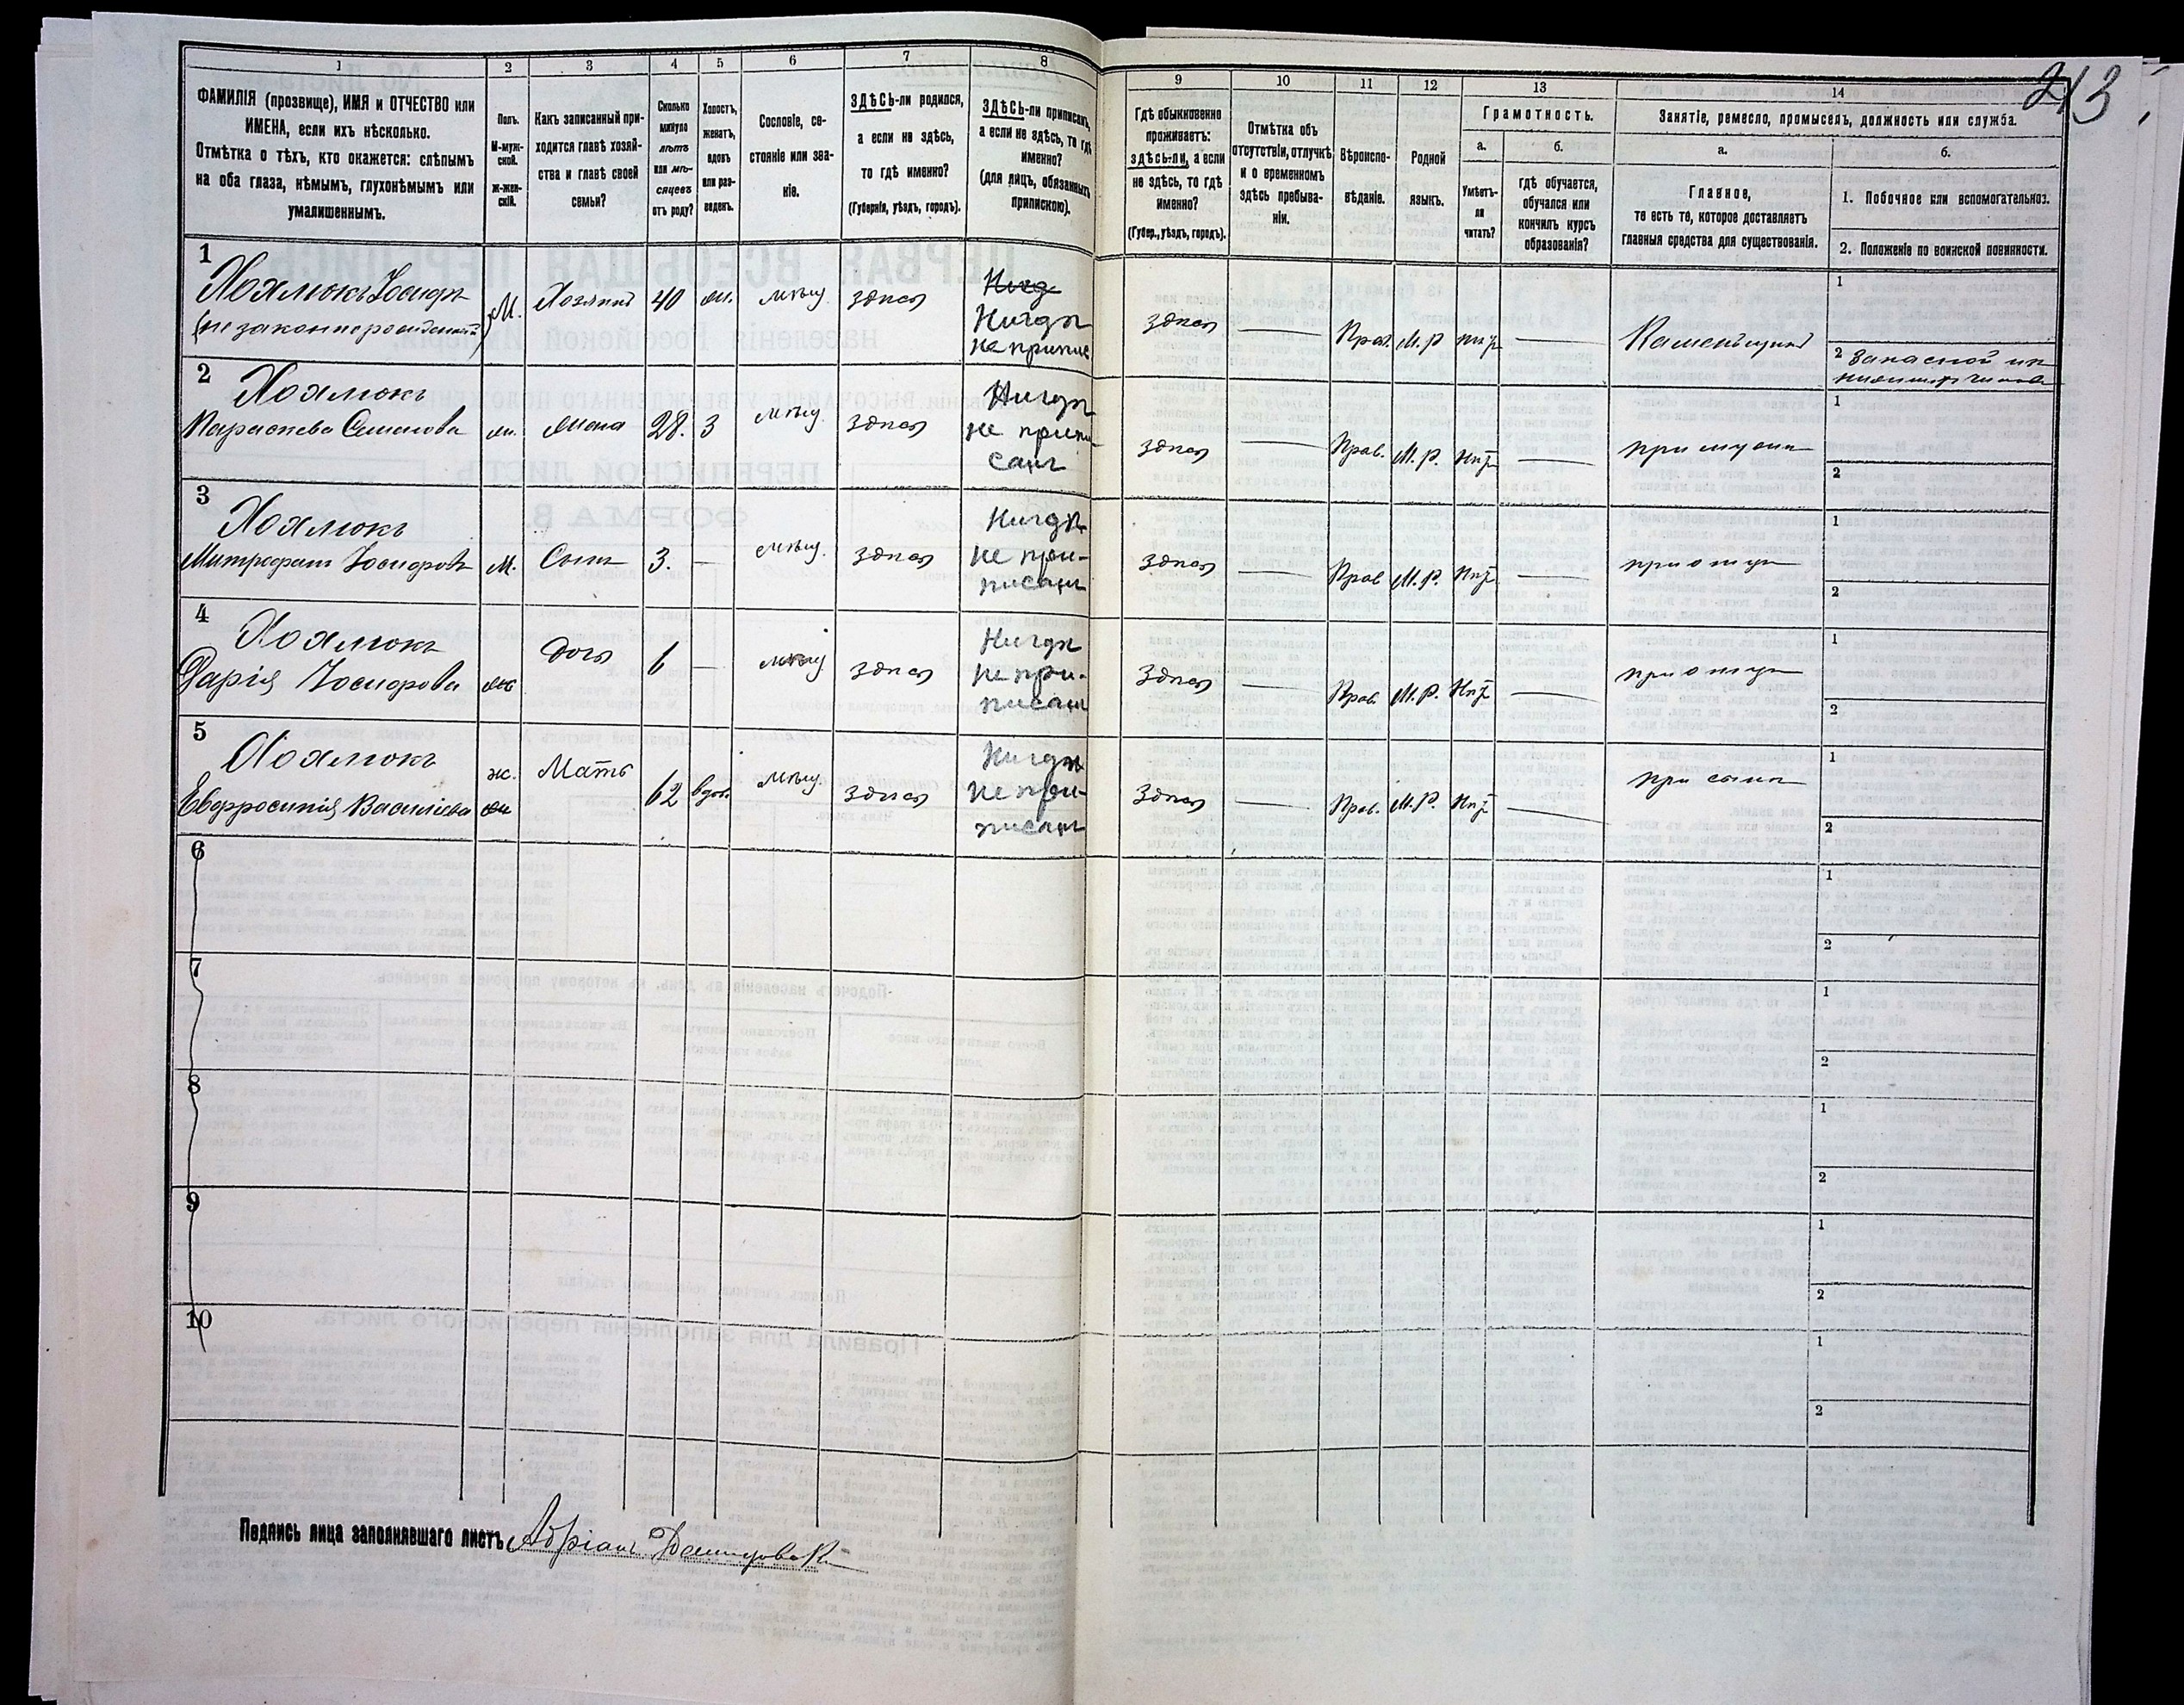 1
2
3
4
5
6
7
8
9
10
11
12
13
14
213
ФАМИЛІЯ (прозвище), ИМЯ и ОТЧЕСТВО или
ИМЕНА, если ихъ нѣсколько.
Отмѣтка о тѣхъ, кто окажется: слѣпымъ
на оба глаза, нѣмымъ, глухонѣмымъ или
умалишеннымъ.
Полъ.
М-муж-
ской.
Ж-жен-
скій.
Какъ записанный при-
ходится главѣ хозяй-
ства и главѣ своей
семьи?
Сколько
минуло
лѣтъ
или мѣ-
сяцевъ
отъ роду?
Холостъ,
женатъ,
вдовъ
или раз-
веденъ.
Сословіе, со-
стояніе или зва-
ніе.
ЗДѢСЬ-ли родился,
а если не здѣсь,
то гдѣ именно?
(Губернія, уѣздъ, городъ).
ЗДѢСЬ-ли приписанъ,
а если не здѣсь, то гдѣ
именно?
(для лицъ, обязанныхъ
припискою).
Гдѣ обыкновенно
проживаетъ:
здѣсь-ли, а если
не здѣсь, то гдѣ
именно?
(Губер., уѣздъ, городъ).
Отмѣтка объ
отсутствіи, отлучкѣ
и о временномъ
здѣсь пребыва-
ніи.
Вѣроиспо-
вѣданіе.
Родной
языкъ.
Грамотность.
а.
Умѣетъ-
ли
читать?
б.
Гдѣ обучается,
обучался или
кончилъ курсъ
образованія?
Занятіе, ремесло, промыселъ, должность или служба.
а.
Главное,
то есть то, которое доставляетъ
главныя средства для существованія.
б.
1. Побочное или вспомогательное.
2. Положеніе по воинской повинности.
1
Хохлюкъ Іосифъ
(незаконнорожденный)
М.
Хозяинъ
40
жн.
мѣщ.
здѣсь
Нигдѣ
не припис
здѣсь
Прав.
М.р
нѣтъ
Каменьщикъ
1
2 Запасной
2
Хохлюкъ
Параскева Семенова
жн.
жена
28.
З
мѣщ.
здѣсь
Нигдѣ
не припи-
санъ
здѣсь
Прав.
М.р.
Нѣтъ
при мужѣ
1
2
3
Хохлюкъ
Митрофанъ Іосифовъ
М.
Сынъ
3.
—
мѣщ.
здѣсь
Нигдѣ
не при-
писанъ
здѣсь
Прав
М.р.
Нѣтъ
при отцѣ
1
2
4
Хохлюкъ
Дарія Іосифова
жн
дочь
—
мѣщ
здѣсь
Нигдѣ
не при-
писанъ
здѣсь
Прав.
М.р.
Нѣтъ
при отцѣ
1
2
5
Хохлюкъ
Евфросинія Василіева
ж.
Мать
62
вдов.
мѣщ.
здѣсь
Нигдѣ
не при-
писанъ
здѣсь
Прав.
М.р.
Нѣтъ
при сынѣ
1
2
6
1
2
7
1
2
8
1
2
9
1
2
10
1
2
Подпись лица заполнявшаго листъ Адріанъ